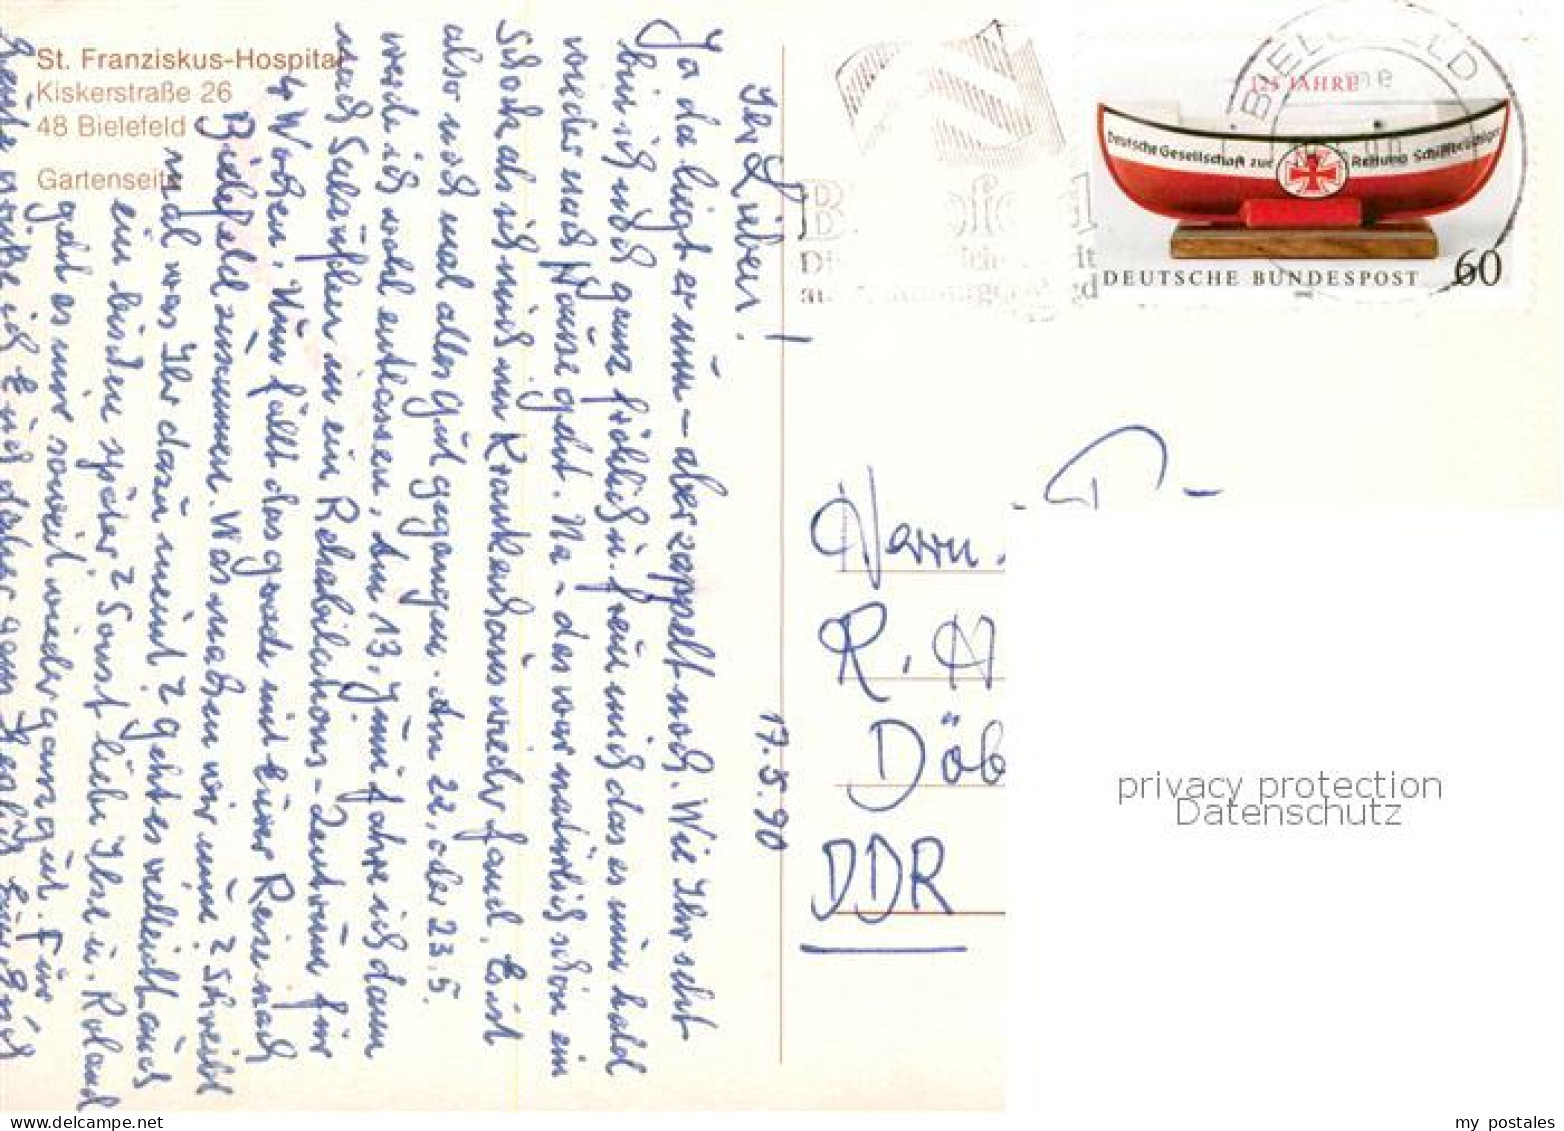 St. Franziskus-Hospital
Kiskerstraße 26
48 Bielefeld
Gartenseite
17.5.90
Ihr Lieben!
Ja da liegt er nun – aber zappelt noch. Wie Ihr seht
bin ich noch ganz fröhlich u. freu mich das es nun bald
wieder nach Hause geht. Na – das war natürlich schon ein
Schock als ich mich im Krankenhaus wieder fand. Es ist
also noch mal alles gut gegangen. Am 22. oder 23.5.
werde ich wohl entlassen, am 13. Juni fahre ich dann
nach Salzuflen in ein Rehabilitations-Zentrum für
4 Wochen. Nun fällt das gerade mit Eurer Reise nach
Bielefeld zusammen. Was machen wir nun? Schreibt
mal was Ihr dazu meint? Geht es vielleicht auch
ein bischen später? Sonst liebe Ilse u. Roland
geht es mir soweit wieder ganz gut. Für
heute grüße ich Euch daher ganz herzlich
125 JAHRE
Deutsche Gesellschaft zur Rettung Schiffbrüchiger
DEUTSCHE BUNDESPOST 60
BIELEFELD
Bielefeld
Herrn
R. A
Döb
DDR
privacy protection
Datenschutz
www.delcampe.net
my_postales